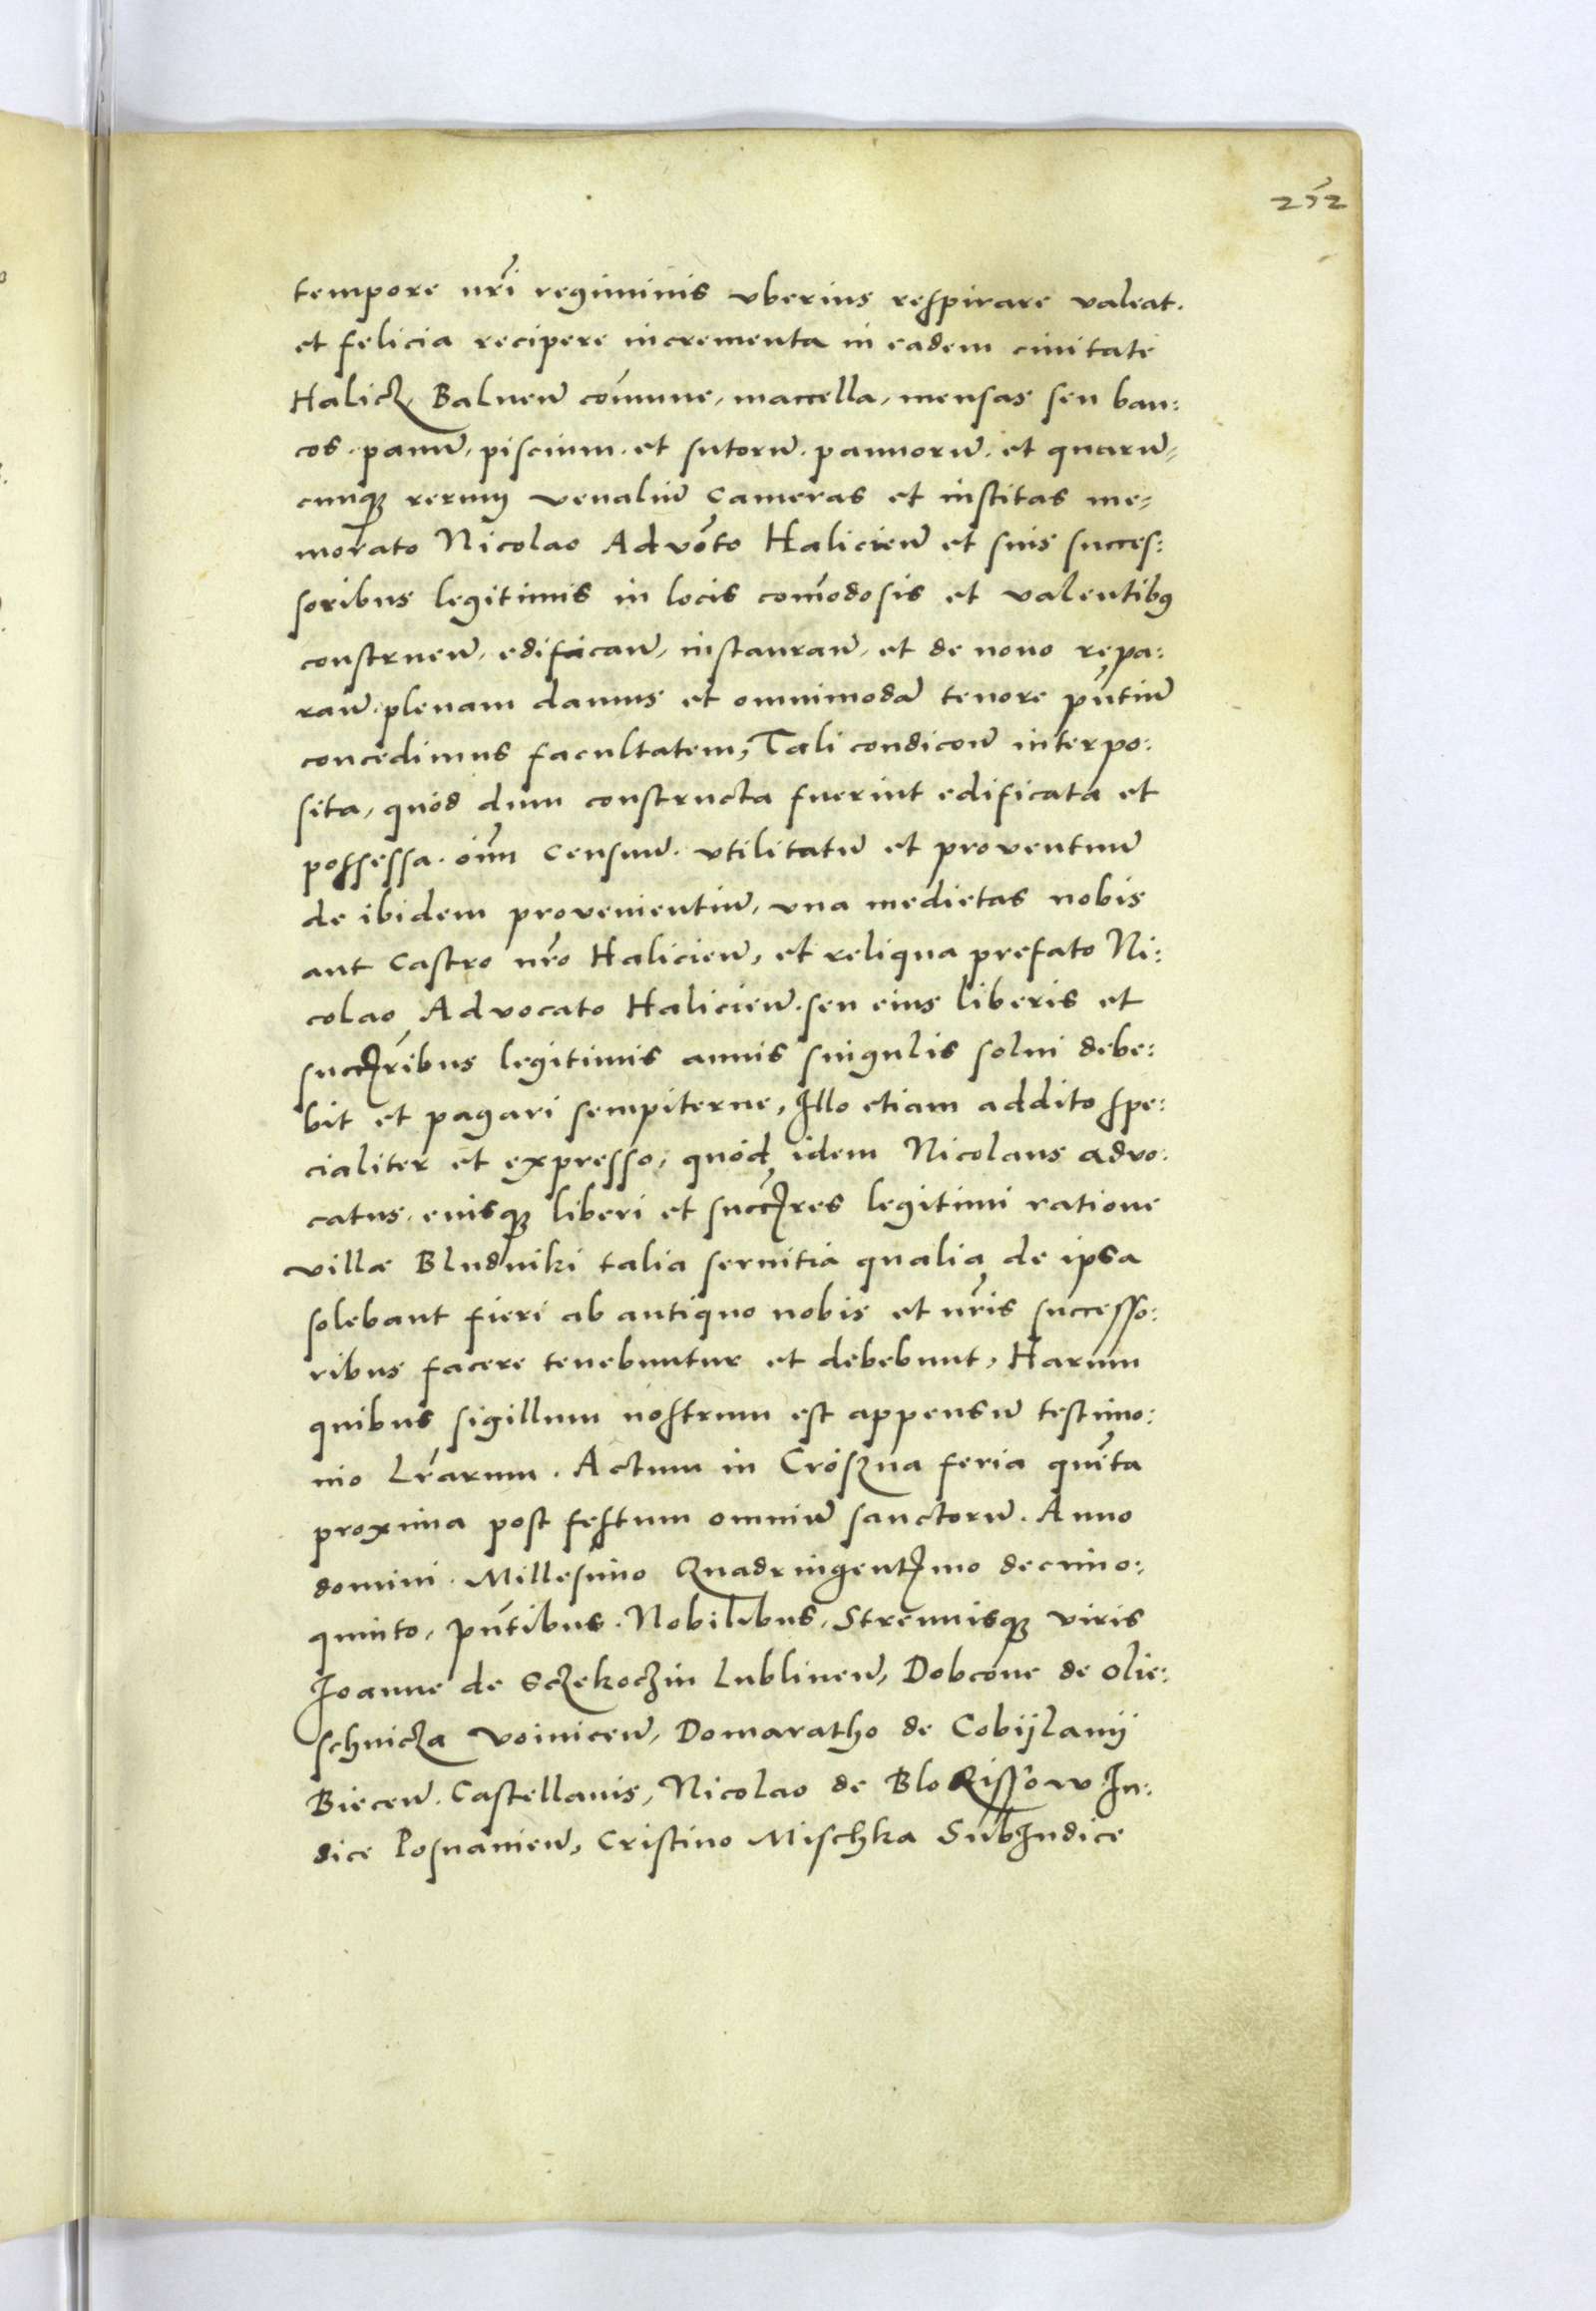 252
tempore nr̃i regiminis vberius respirare valeat.
et felicia recipere incrementa in eadem ciuitate
Halicz, Balneũ com̃une, maccella, mensas seu ban:
cos. panũ, piscium. et sutorũ. pannorũ. et quarũ,
cunqꝫ rerum venaliũ cameras et institas me,
morato Nicolao Advõto Halicieñ et suis succes:
soribus legitimis in locis com̃odosis et valentibꝰ
construeñ, edificañ, instaurañ, et de nouo repa:
rañ. plenam damus et omnimodã tenore pñtiũ
concedimus facultatem, Tali condicoñ interpo:
sita, quòd dum constructa fuerint edificata et
possessa. oĩm censuũ. vtilitatũ et proventuũ
de ibidem provenientiũ, vna medietas nobis
aut Castro nrõ Halicieñ, et reliqua prefato Ni:
colao Advocato Halicieñ. seu eius liberis et
succꝛ̃ribus legitimis annis singulis solui debe:
bit et pagari sempiterne, Illo etiam addito spe:
cialiter et expresso, quòd idem Nicolaus advo:
catus, eiusqꝫ liberi et succꝛ̃res legitimi ratione
villæ Bludniki talia seruitia qualia de ipsa
solebant fieri ab antiquo nobis et nr̃is successo:
ribus facere tenebuntur et debebunt, Harum
quibus sigillum nostrum est appensũ testimo:
nio Lr̃arum. Actum in Croszna feria quĩta
proxima post festum omniũ sanctorũ. Anno
domini. Millesimo Quadringentꝛ̃mo decimo:
quinto, pñtibus. Nobilibus, Strenuisqꝫ viris
Joanne de Sczekoczin Lublineñ, Dobcone de Olie:
schnicza Voiniceñ, Domaratho de Cobijlanij
Bieceñ. Castellanis, Nicolao de Blo Rissow Ju:
dice Posnanieñ, Cristino Mischka SubJudice